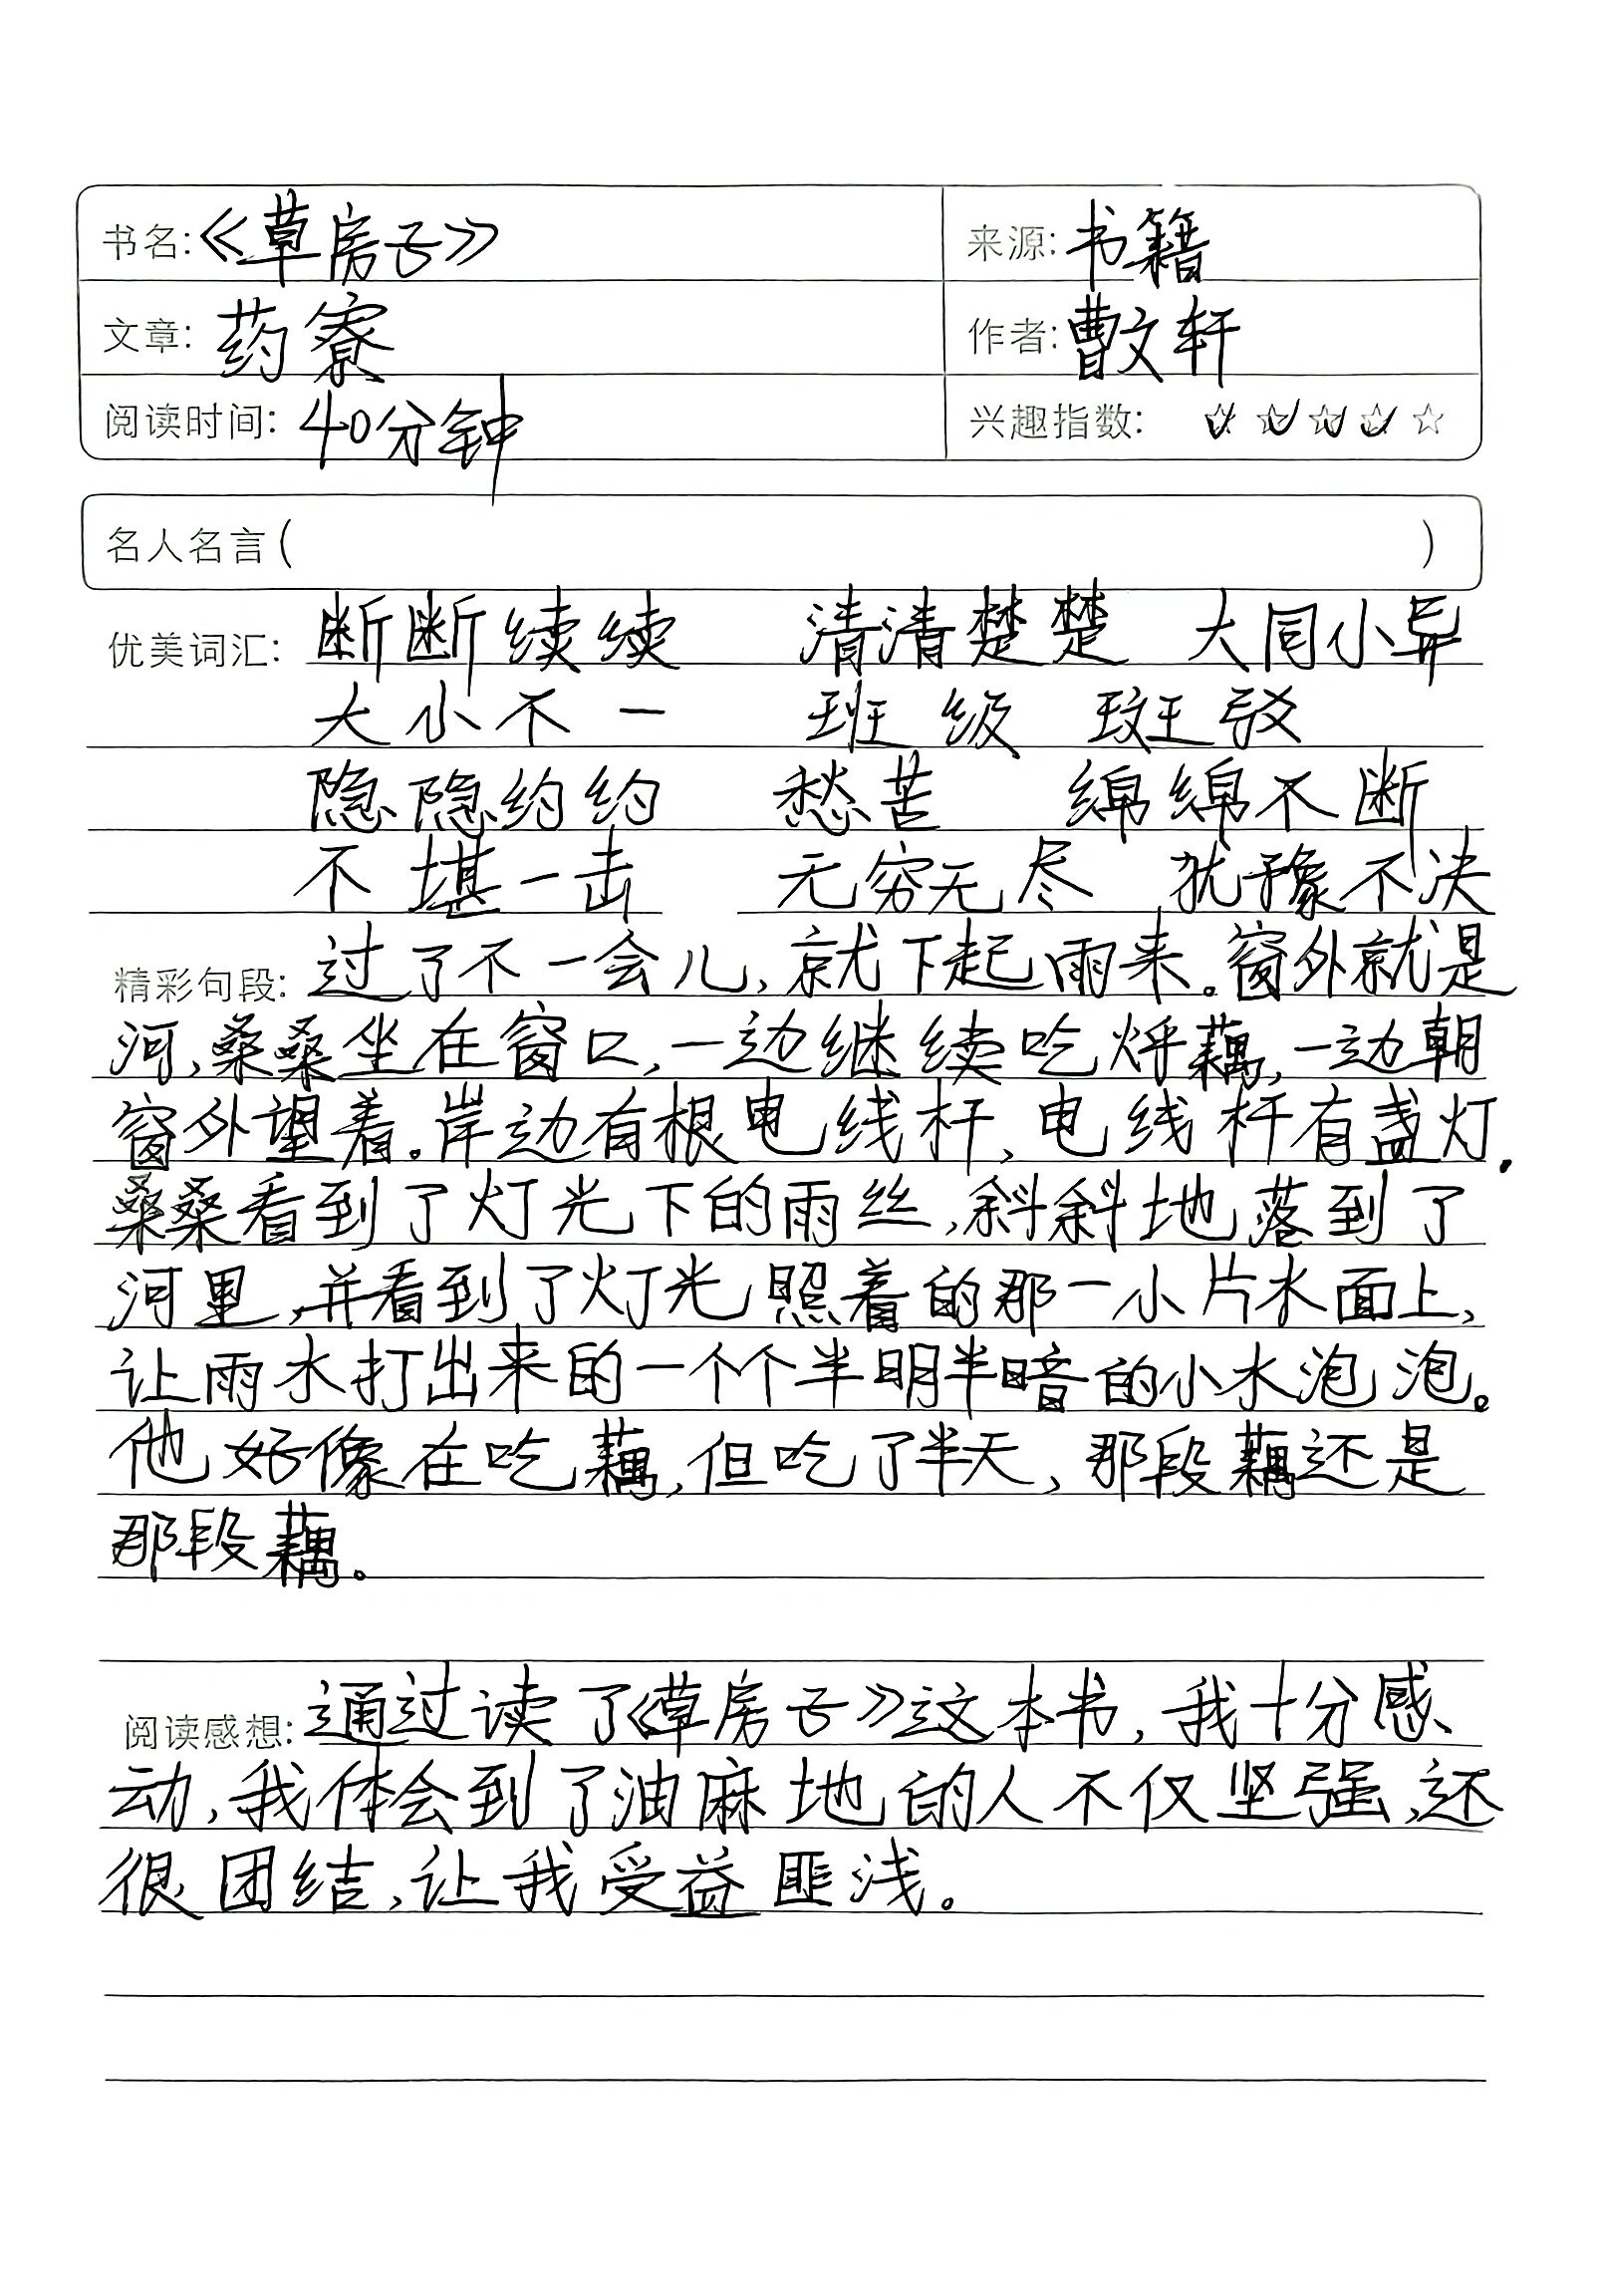 书名:《草房子》 来源:书籍
文章:药寮 作者:曹文轩
阅读时间:40分钟 兴趣指数:☆☆☆☆☆
名人名言( )
优美词汇:断断续续 清清楚楚 大同小异
大小不一 班级 斑驳
隐隐约约 愁苦 绵绵不断
不堪一击 无穷无尽 犹豫不决
精彩句段:过了不一会儿,就下起雨来。窗外就是
河,桑桑坐在窗口,一边继续吃烀藕,一边朝
窗外望着。岸边有根电线杆,电线杆有盏灯.
桑桑看到了灯光下的雨丝,斜斜地落到了
河里,并看到了灯光照着的那一小片水面上,
让雨水打出来的一个个半明半暗的小水泡泡。
他好像在吃藕,但吃了半天,那段藕还是
那段藕。
阅读感想:通过读了《草房子》这本书,我十分感
动,我体会到了油麻地的人不仅坚强,还
很团结,让我受益匪浅。